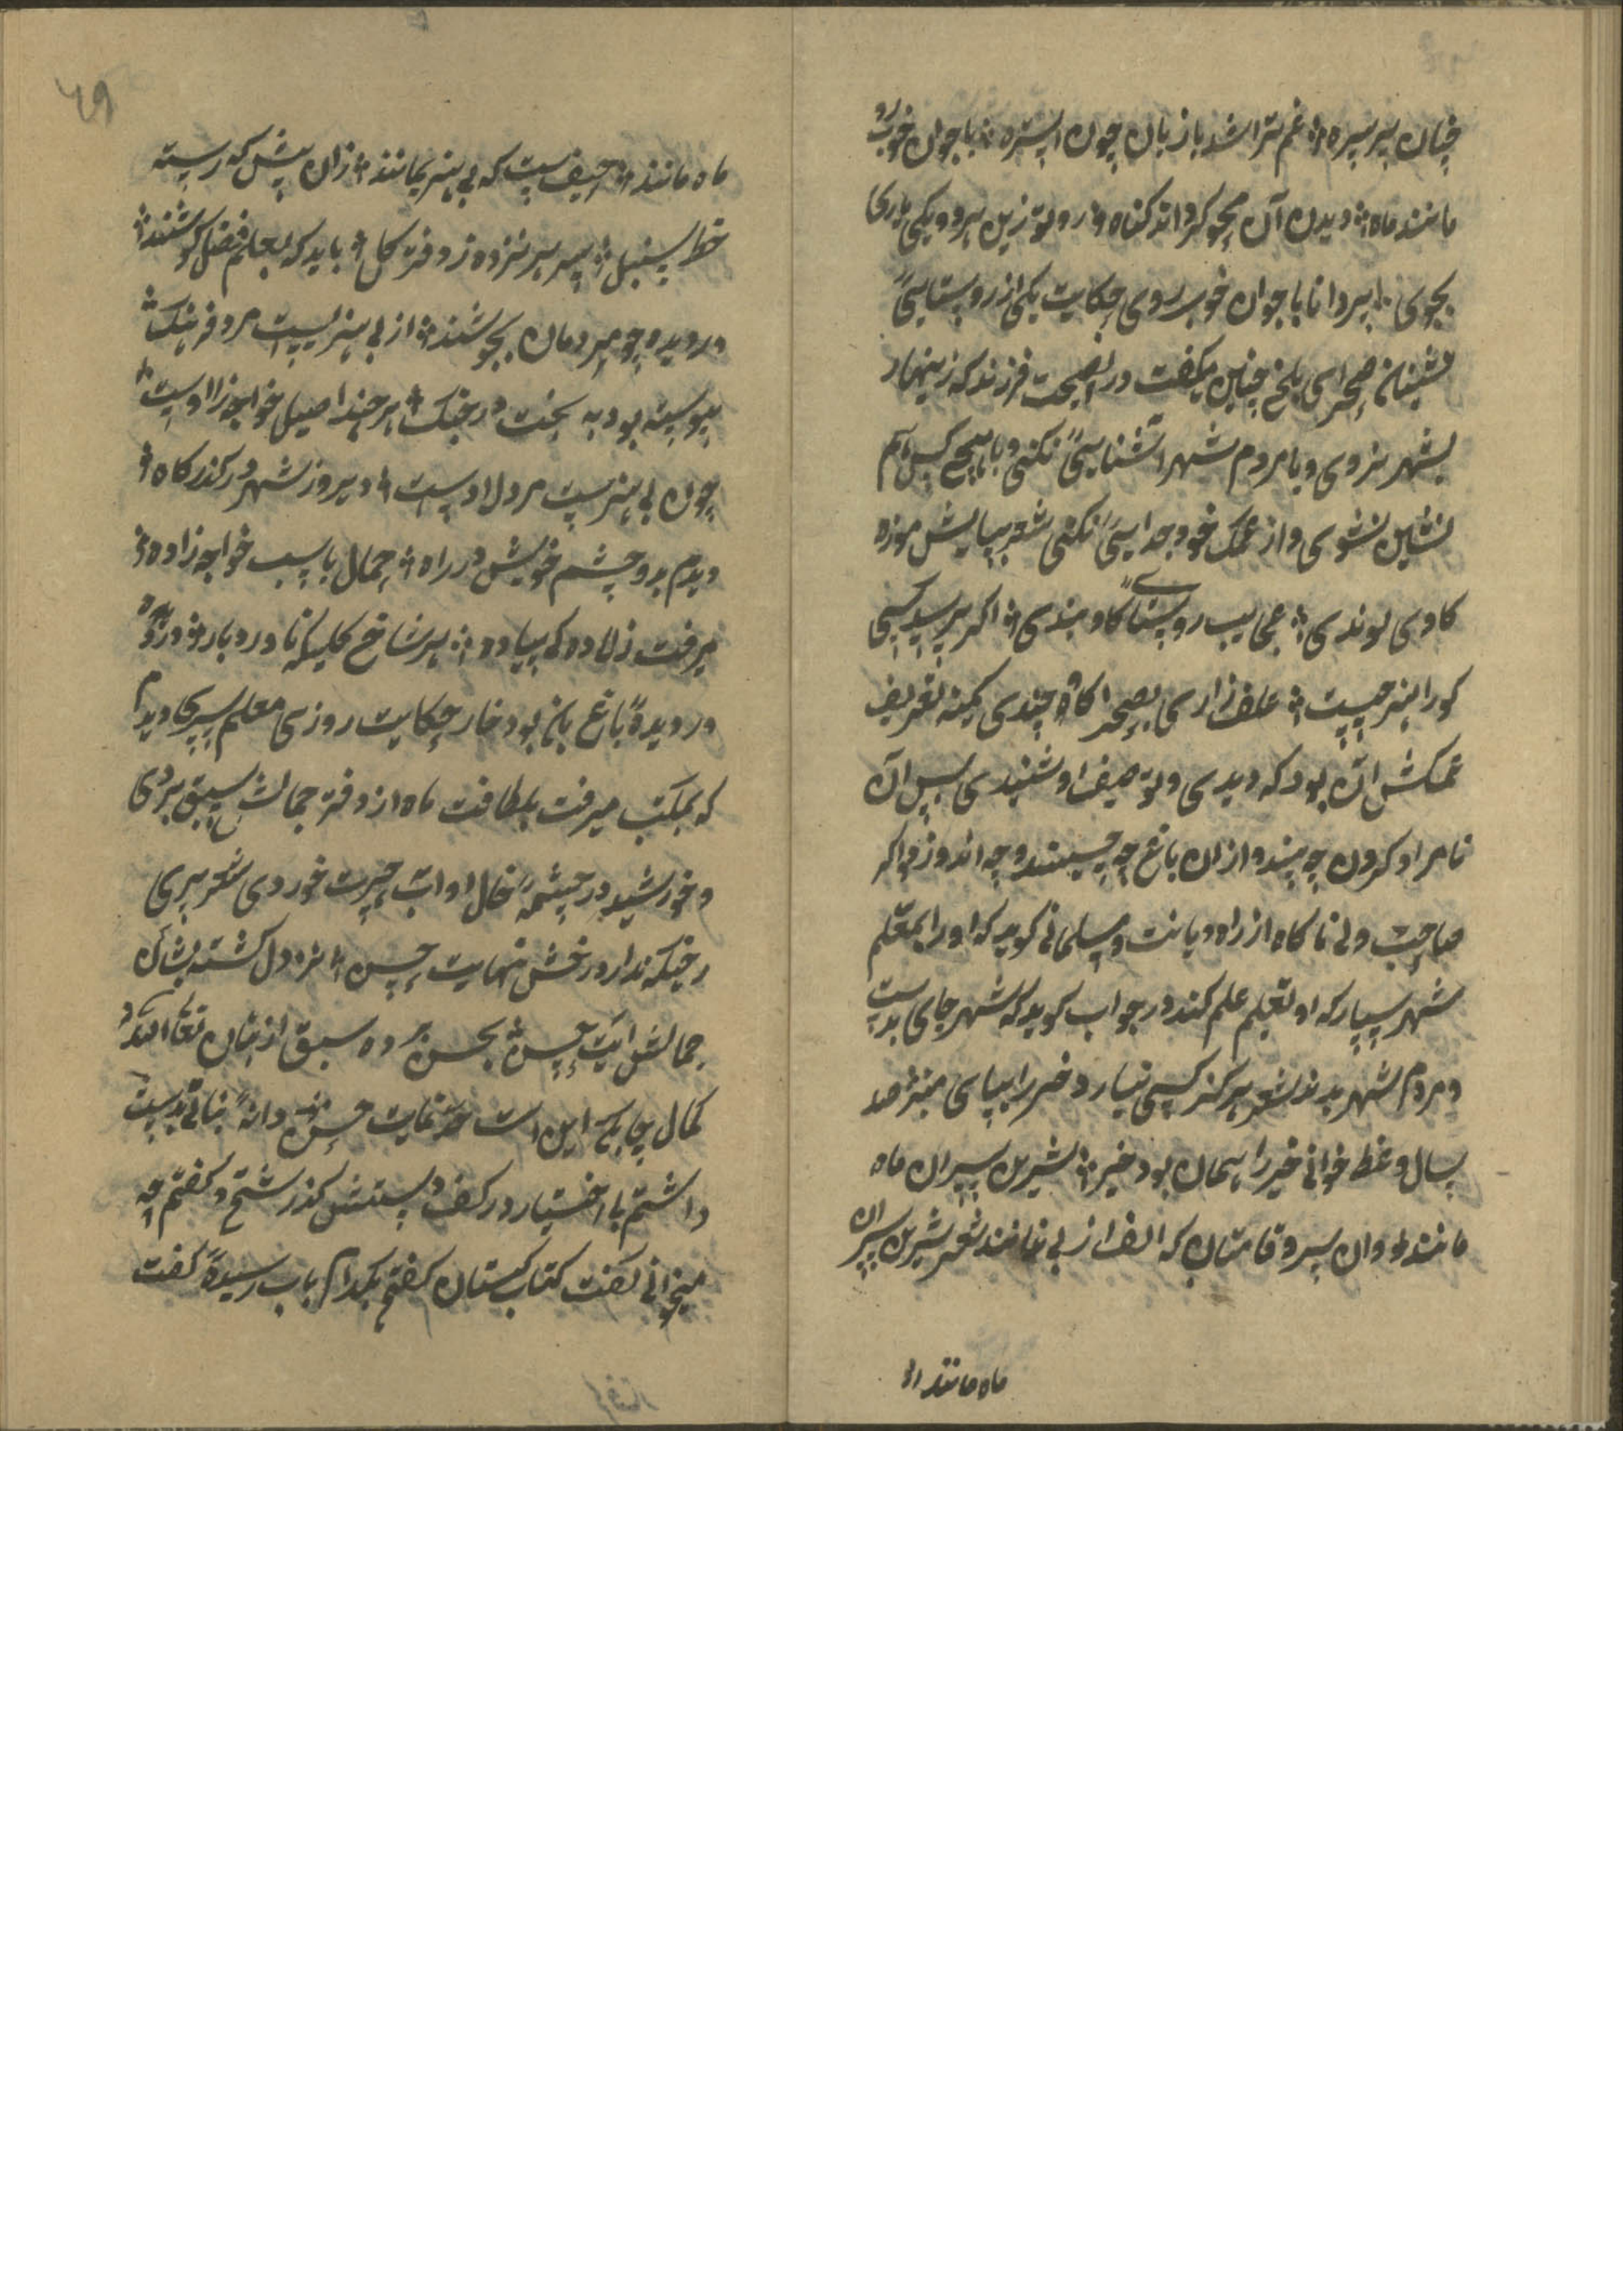 چنان پیر سپره ؞ غم تراشد با زبان چون استره ؞ با جوان خوب رو
مانند ماه ؞ دیدن آن محو کرداند کناه ؞ رو تو زین هر دو یکی یاری
بجوی ؞ پیر دانا یا جوان خوب روی حکایت یکی از روستایی
نشینان صحرای بلخ چنین میکفت در نصیحت فرزند که زینهار
بشهر نروی و با مردم شهر آشنایی نکنی و با هیچ کس
نشین نشوی و از نمک خود جدایی نکنی شعر بپایش موزه
کاوی لوندی ؞ عجایب روستایی کاو بندی ؞ اکر پرسد کسی
کورا هنر چیست ؞ علف زاری بصحرا کاه چندی کمینه تعریف
نمکش آن بود که دیدی و توصیف او شنیدی پس آن
نامراد کردن چه پسندد و ازان باغ چه چیند و چه اندوزد اکر
صاحب دلی ناکاه از راه دیانت و مسلمانی کوید که او را بمعلم
شهر سپار که او تعلیم علم کند در جواب کوید که شهر جای بدست
و مردم شهر بدند شعر هرکز کسی نیارد خر را بپای منبر صد
سال وعظ خوانی خر را همان بود خر ؞ شیرین پسران ماه
مانند و وان سرو قامتان که الف از بی نمانند شعر شیرین پسران
ماه مانند ؞
ماه مانند ؞ حیفست که بی هنر بمانند ؞ زان پیش که رسته
خط سنبل ؞ سر بر نزده ز دفتر کل ؞ باید که بعلم و فضل کوشند ؞
در دیده چو مردمان بجوشند ؞ از بی هنریست مرد فرهنک ؞
پیوسته بود به بخت در جنک ؞ هر چند اصیل خواجه زاد است ؞
چون بی هنرست مرد لاد است ؞ دیروز شهر در کذرکاه ؞
دیدم بدو چشم خویش در راه ؞ حمال با سب خواجه زاده ؞
میرفت زلاده کی پیاده ؞ هر شاخ کلی که نا در بار ؞
در دیده باغبان بود خار حکایت روزی معلم پسری دیدم
که بمکتب میرفت بلطافت ماه از دفتر جمالش سبق بردی
و خورشید در چشمه خال او آب حیرت خوردی شعر پری
رخیکه ندارد رخش نهایت حسن ؞ نزد دل کشته بشان
جمالش آیت حسن ؞ بحسن برده سبق از بتان تعالی الله
کمال چابکی این است و غایت حسن دانه نباتی بدست
داشتم بی اختیار در کف دستش کذراشتم و کفتم چه
میخوانی کفت کتاب کلستان کفتم بکدام باب رسیده کفت